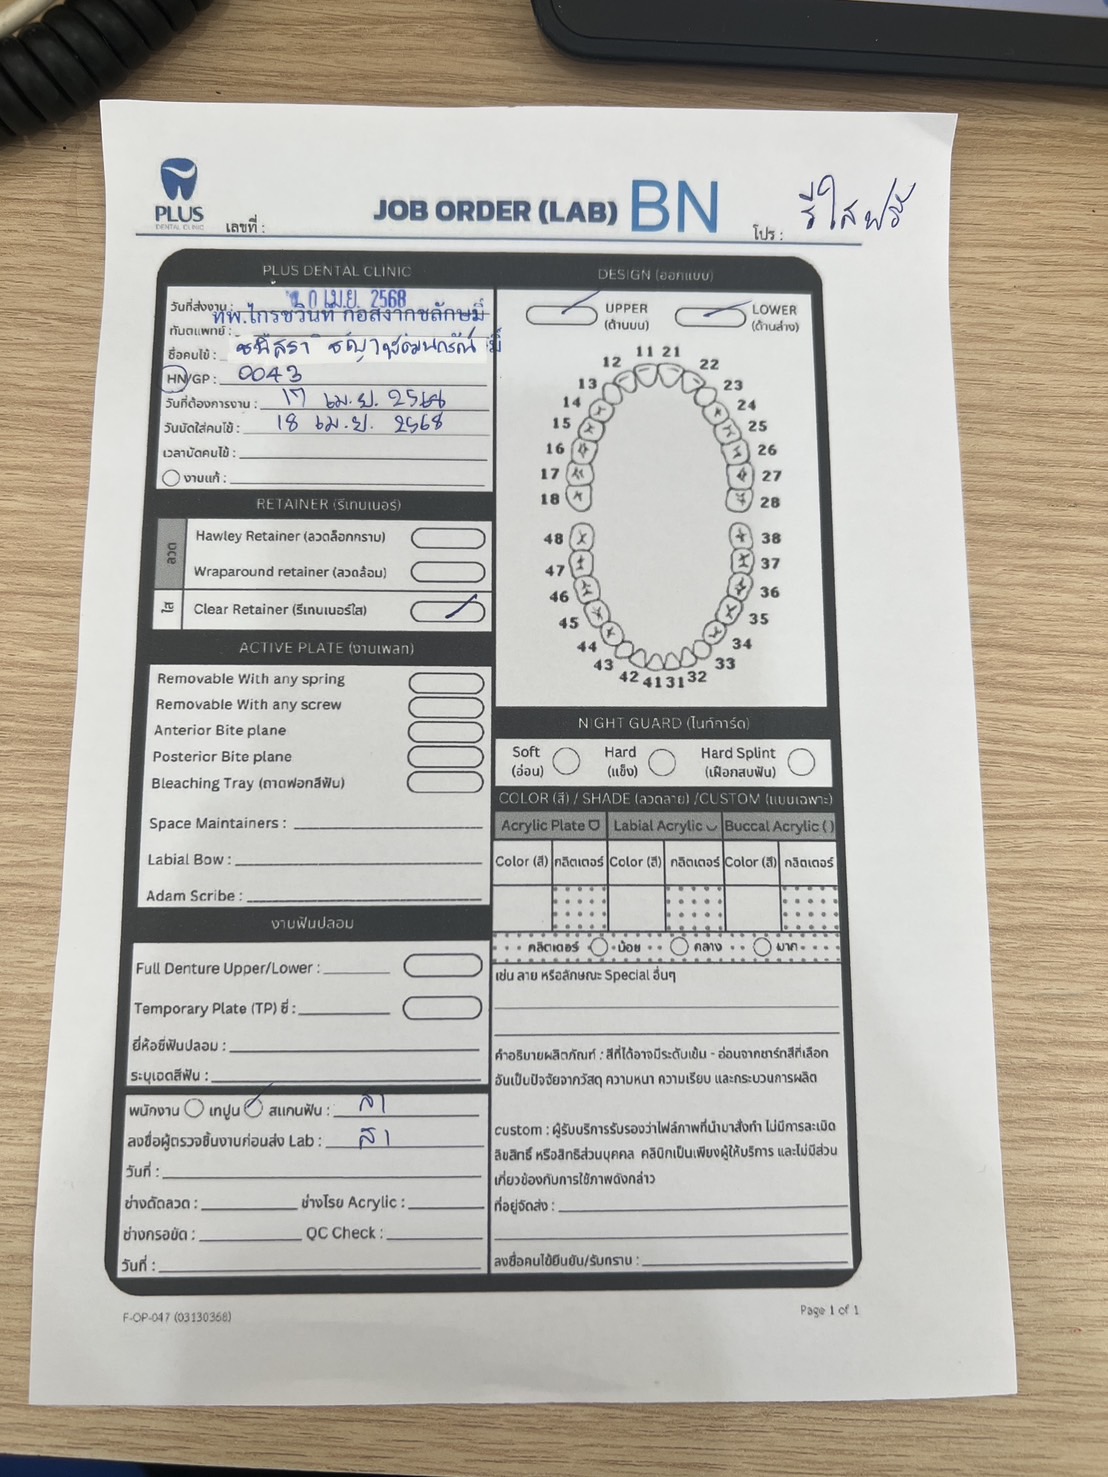 PLUS
DENTAL CLINIC
เลขที่ :
JOB ORDER (LAB) BN
โปร : รีใสฟรี
PLUS DENTAL CLINIC
วันที่ส่งงาน : เม.ย. 2568
ทันตแพทย์ :
ชื่อคนไข้ :
HN/GP : 0043
วันที่ต้องการงาน : 17 เม.ย. 2568
วันนัดใส่คนไข้ : 18 เม.ย. 2568
เวลานัดคนไข้ :
งานแก้ :
RETAINER (รีเทนเนอร์)
ลวด
Hawley Retainer (ลวดล็อกกราม)
Wraparound retainer (ลวดล้อม)
ใส
Clear Retainer (รีเทนเนอร์ใส)
ACTIVE PLATE (งานเพลท)
Removable With any spring
Removable With any screw
Anterior Bite plane
Posterior Bite plane
Bleaching Tray (ถาดฟอกสีฟัน)
Space Maintainers :
Labial Bow :
Adam Scribe :
งานฟันปลอม
Full Denture Upper/Lower :
Temporary Plate (TP) ซี่ :
ยี่ห้อซี่ฟันปลอม :
ระบุเฉดสีฟัน :
พนักงาน เทปูน สแกนฟัน : สา
ลงชื่อผู้ตรวจชิ้นงานก่อนส่ง Lab : สา
วันที่ :
ช่างดัดลวด : ช่างโรย Acrylic :
ช่างกรอขัด : QC Check :
วันที่ :
DESIGN (ออกแบบ)
UPPER
(ด้านบน)
LOWER
(ด้านล่าง)
11 21
12 22
13 23
14 24
15 25
16 26
17 27
18 28
48 38
47 37
46 36
45 35
44 34
43 33
42 41 31 32
NIGHT GUARD (ไนท์การ์ด)
Soft
(อ่อน)
Hard
(แข็ง)
Hard Splint
(เฝือกสบฟัน)
COLOR (สี) / SHADE (ลวดลาย) /CUSTOM (แบบเฉพาะ)
Acrylic Plate Labial Acrylic Buccal Acrylic ( )
Color (สี) กลิตเตอร์ Color (สี) กลิตเตอร์ Color (สี) กลิตเตอร์
กลิตเตอร์ น้อย กลาง มาก
เช่น ลาย หรือลักษณะ Special อื่นๆ
คำอธิบายผลิตภัณฑ์ : สีที่ได้อาจมีระดับเข้ม - อ่อนจากชาร์ทสีที่เลือก
อันเป็นปัจจัยจากวัสดุ ความหนา ความเรียบ และกระบวนการผลิต
custom : ผู้รับบริการรับรองว่าไฟล์ภาพที่นำมาสั่งทำ ไม่มีการละเมิด
ลิขสิทธิ์ หรือสิทธิส่วนบุคคล คลินิกเป็นเพียงผู้ให้บริการ และไม่มีส่วน
เกี่ยวข้องกับการใช้ภาพดังกล่าว
ที่อยู่จัดส่ง :
ลงชื่อคนไข้ยืนยัน/รับทราบ :
F-OP-047 (03130368)
Page 1 of 1